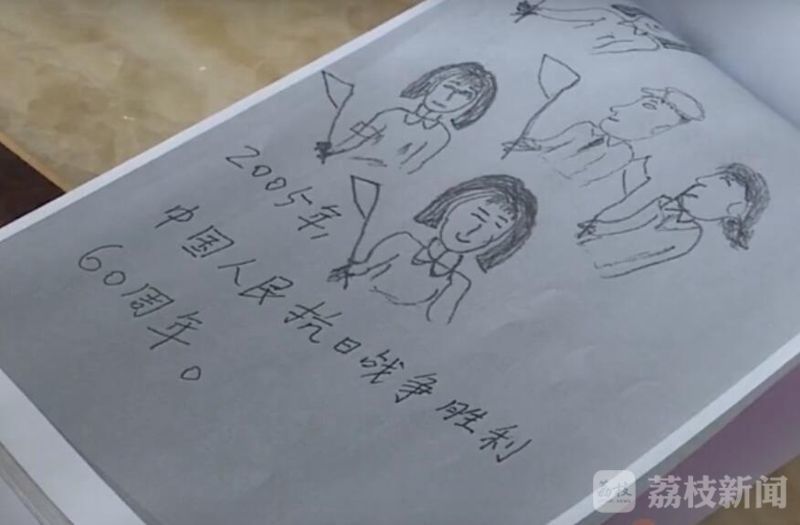 2005年,
中国人民抗日战争胜利
60周年。
荔枝
荔枝新闻